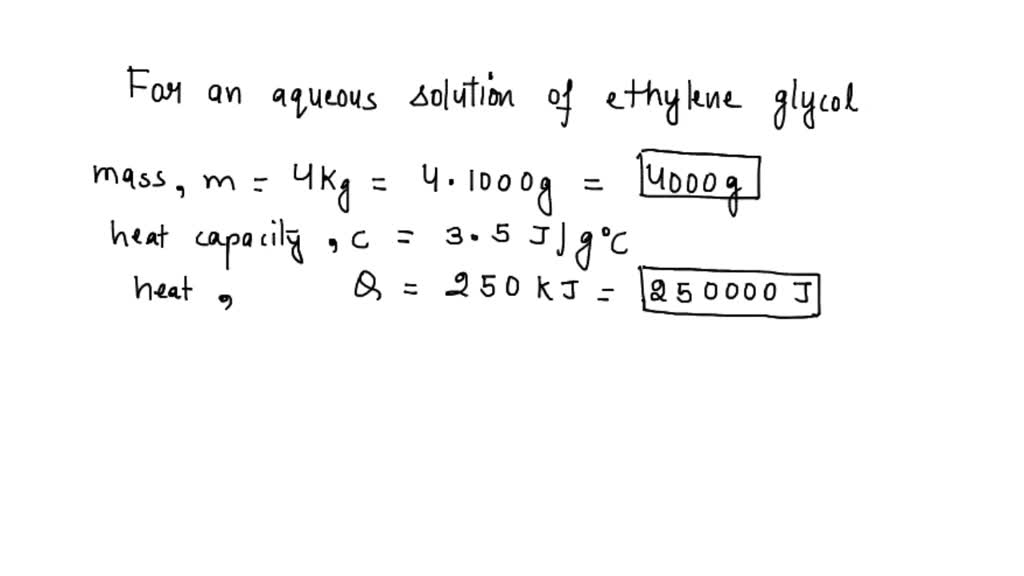 For an aqueous solution of ethylene glycol
mass, m = 4Kg = 4.1000g = 4000g
heat capacity, c = 3.5 J/g°C
heat, Q = 250 KJ = 250000 J